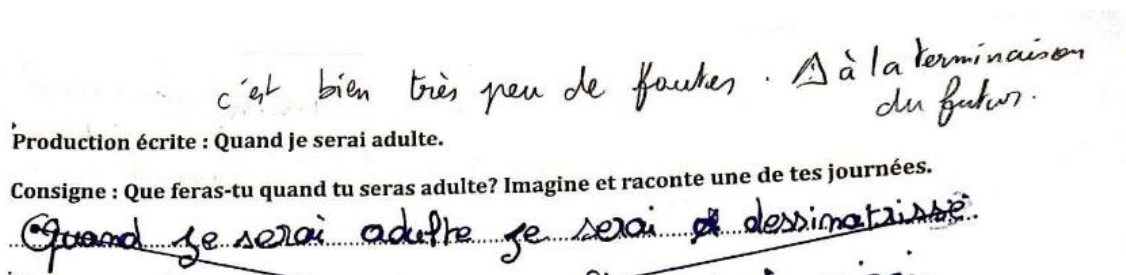 c'est bien très peu de fautes. ⚠ à la terminaison
du futur.
Production écrite : Quand je serai adulte.
Consigne : Que feras-tu quand tu seras adulte? Imagine et raconte une de tes journées.
Quand je serai adulte je serai dessinatrisse.